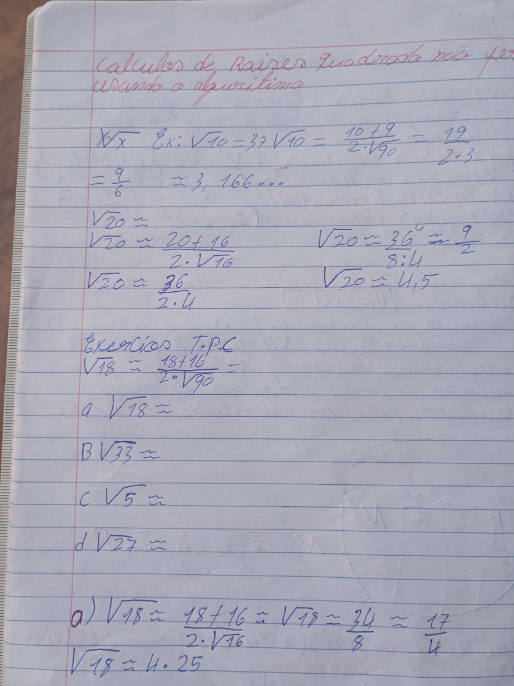 Calculos de Raizes Quadrada não per
usando o algoritimo
√x Ex: √10 = 3,7 √10 = 10+9/2·√90 = 19/2·3
= 9/6 ≈ 3,166....
√20 ≈
√20 ≈ 20+16/2·√16 √20 ≈ 36/8:4 ≈ 9/2
√20 ≈ 36/2·4 √20 ≈ 4,5
Exercios T.P.C
√18 ≈ 18+16/2·√90 =
a √18 ≈
B √33 ≈
c √5 ≈
d √27 ≈
a) √18 ≈ 18+16/2·√16 ≈ √18 ≈ 34/8 ≈ 17/4
√18 ≈ 4.25